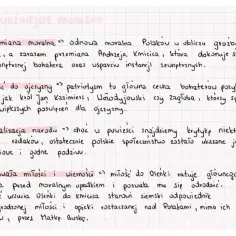 miana moralna => odnowa moralna Polaków w obliczu groźb
, a zarazem przemiana Andrzeja Kmicica, która dokonuje s
nętrznej bohatera oraz wsparciu instancji zewnętrznych.
ć do ojczyzny => patriotyzm to główna cecha bohaterów pozyt
jak król Jan Kazimierz, Wołodyjowski czy Zagłoba, którzy są
większych poświęceń dla ojczyzny.
alizacja narodu => choć w powieści znajdziemy krytykę niekt
rodaków, ostatecznie polskie społeczeństwo zostało ukazane ja
we i godne podziwu.
wała miłości i wierności => miłość do Oleńki ratuje głównego
a przed moralnym upadkiem i pozwala mu się odrodzić.
uczucia Oleńki do Kmicica stanowi siemski odpowiednik
opieki roztaczanej nad Polakami, mimo ich
, przez Matkę Boską.